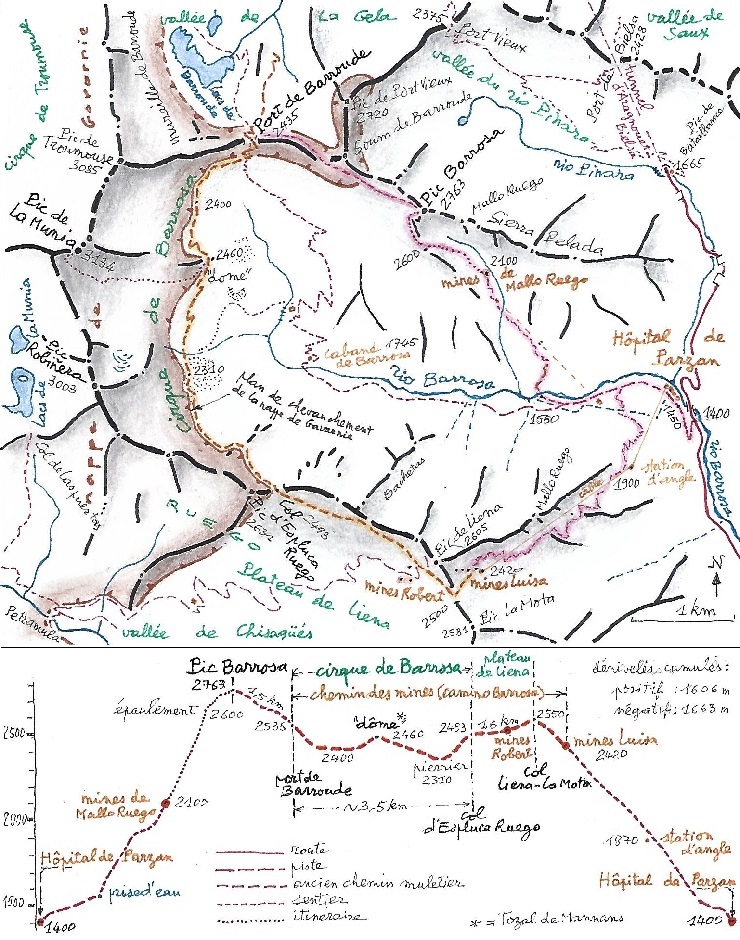 vallée de La Gela
2375
Port Vieux
vallée de Saux
Bielsa
2428
Port de
Tunnel
Bielsa
cirque de Troumouse
Gavarnie
muraille de Barroude
lacs de Barroude
Port de Barroude
2435
Pic de Port Vieux
2720
Soum de Barroude
vallée du rio Pinara
rio Pinara
1665
Pic de Troumouse
3085
Pic Barrosa
2763
Mallo Ruego
Sierra Pelada
Pic de La Munia
3134
2400
2460
"dôme"
2600
2100
mines de Mallo Ruego
cirque de Barrosa
nappe de
La Munia
Pic Robiñera
3003
Lacs de
2310
Plan de chevauchement
de la nappe de Gavarnie
Cabane 1745
de Barrosa
Rio Barrosa
Hôpital de Parzan
1450
1400
1550
rio Barrosa
station d'angle
1900
câble
Mallo Ruego
Bachetas
Pic de Liena
2605
Col 2493
d'Espluca Ruego
RUEGO
Plateau de Liena
mines Robert
2420
mines Luisa
2500
2581
Pic La Mota
Petramula
vallée de Chisagüés
N
1 km
Pic Barrosa
2763
cirque de Barrosa
plateau de Liena
dénivelés cumulés:
positif : 1606 m
négatif : 1663 m
chemin des mines (camino Barrosa)
épaulement
2600
1,5 km
2535
2500
2400
"dôme"*
2460
pierrier
2310
2493
1,6 km
mines Robert
2550
mines Luisa
2420
port de Barroude
~3,5 km
col d'Espluca Ruego
col Liena-La Mota
mines de Mallo Ruego
2100
2000
1870
station d'angle
Hôpital de Parzan
prise d'eau
1500
1400
route
piste
ancien chemin muletier
sentier
itinéraire
* = Tozal de Mannans
Hôpital de Parzan
1400